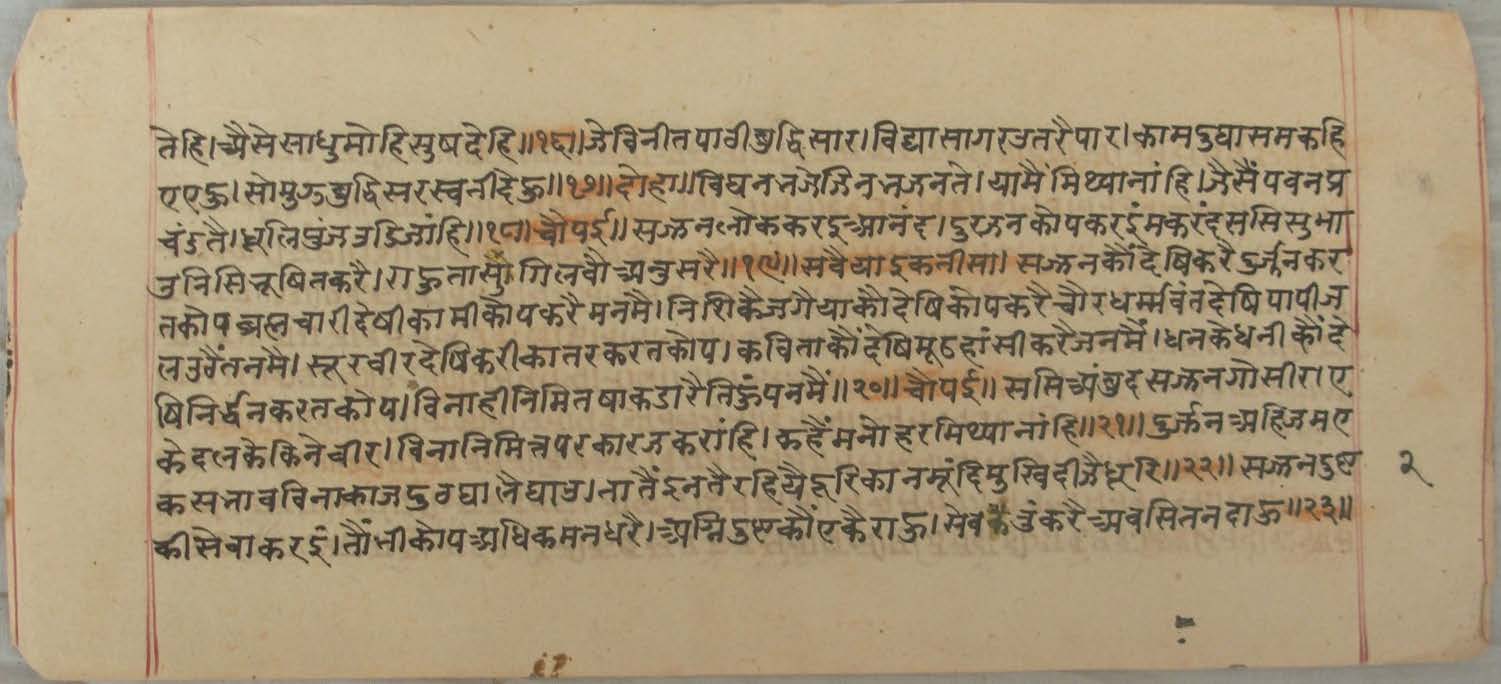 तेहि।अैसेसाधुमोहिसुषदेहि॥१६॥जेविनीतपाठीबुद्धिसार।विद्यासागरउतरैपार।कामदुघासमकहि
एएऊ।सोमुऊबुद्धिसरस्वतीदेऊ॥१७॥दोहा॥विघनभजेजिनभजनते।यामैंमिथ्यानांहि।जैसैंपवनप्र
चंडतै।धूलिपुंजउडिजांहि॥१८॥चौपई॥सज्जनलोककरइआनंद।दुरजनकोपकरइंमकरंदससिसुभा
उनिसिभूषितकरै।राऊतासुगिलवौअनुसरै॥१९॥सवैयाइकतीसा।सज्जनकौंदेषिकरैदुर्जनकर
तकोपब्रह्मचारीदेषीकामीकोपकरैमनमै।निशिकैजगैयाकौदेषिकोपकरैचौरधर्म्मवंतदेषिपापीज
लउठैंतनमै।सूरवीरदेषिकरीकातरकरतकोप।कविताकौंदेषिमूढहांसीकरैजनमैं।धनकेधनीकौंदे
षिनिर्द्धनकरतकोप।विनाहीनिमितषाकडारैतिऊंपनमैं॥२०॥चौपई॥ससिअंबुदसज्जनगोसीराए
केदलकेकिनेचीर।विनानिमित्तपरकारजकरांहि।कहैंमनोहरमिथ्यानांहि॥२१॥दुर्जनअहिजमए
कसभावविनाकाजदुठघालेघाउ।तातैंइनतैरहियैदूरिकानमूंदिमुखिदीजैधूरि॥२२॥सज्जनदुष्ट
कीसेवाकरइं।तौंभीकोपअधिकमनधरै।अग्निदुष्टकौंएकैराऊ।सेवकउंकरैअवसितनदाऊ॥२३॥
२